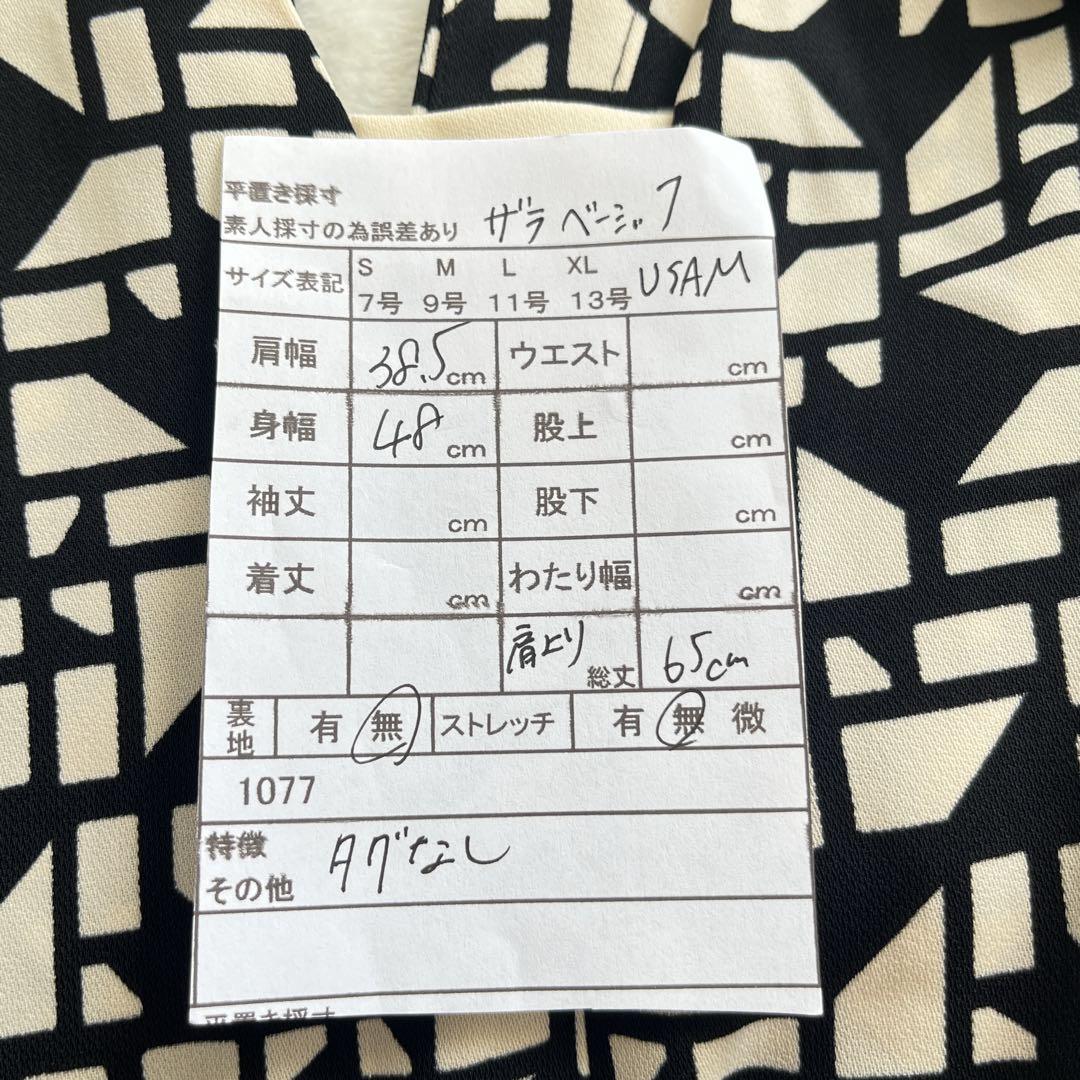 平置き採寸
素人採寸の為誤差あり ザラ ベーシック
サイズ表記 S M L XL USAM
7号 9号 11号 13号
肩幅 38.5cm ウエスト cm
身幅 48cm 股上 cm
袖丈 cm 股下 cm
着丈 cm わたり幅 cm
肩より総丈 65cm
裏地 有 無 ストレッチ 有 無 微
1077
特徴 タグなし
その他
平置き採寸